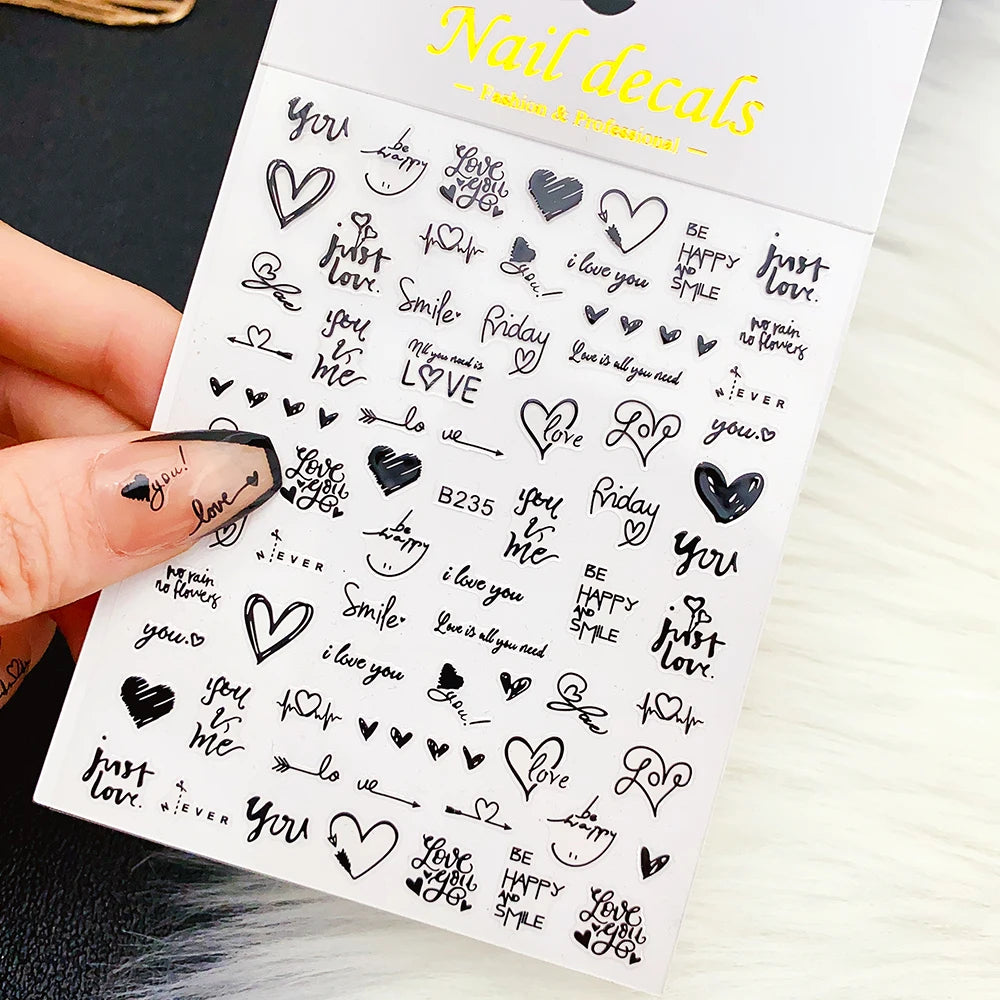 Nail decals
— Fashion & Professional —
you
be
happy
Love
you
just
love.
you!
i love you
BE
HAPPY
AND
SMILE
just
love.
Love
Smile
friday
no rain
no flowers
you
&
me
All you need is
LOVE
Love is all you need
NEVER
lo ve
love
Love
you.
you!
love
Love
you
B235
you
&
me
friday
you
NEVER
be
happy
i love you
BE
HAPPY
AND
SMILE
no rain
no flowers
Smile
Love is all you need
just
love.
you.
i love you
you!
Love
you
&
me
just
love.
lo ve
love
Love
NEVER
you
be
happy
Love
you
BE
HAPPY
AND
SMILE
Love
you